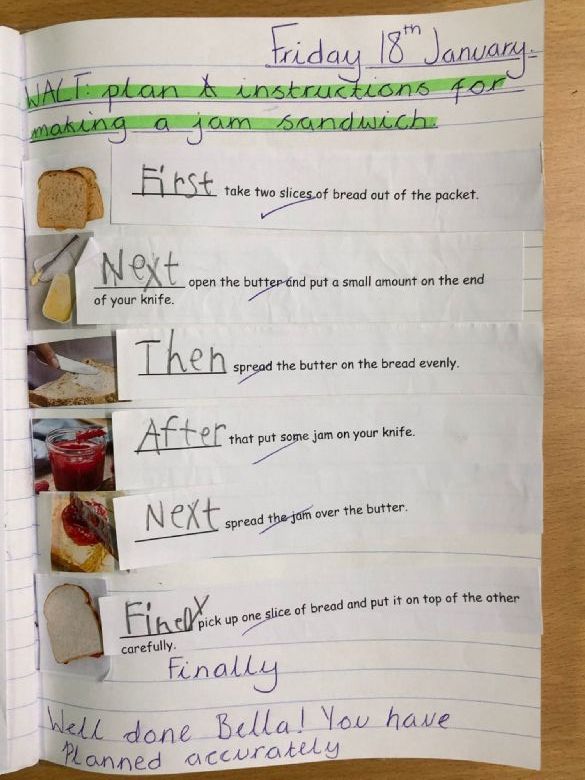 Friday 18th January.
WALT: plan & instructions for
making a jam sandwich.
First take two slices of bread out of the packet.
Next open the butter and put a small amount on the end
of your knife.
Then spread the butter on the bread evenly.
After that put some jam on your knife.
Next spread the jam over the butter.
Finely pick up one slice of bread and put it on top of the other
carefully.
Finally
Well done Bella! You have
Planned accurately